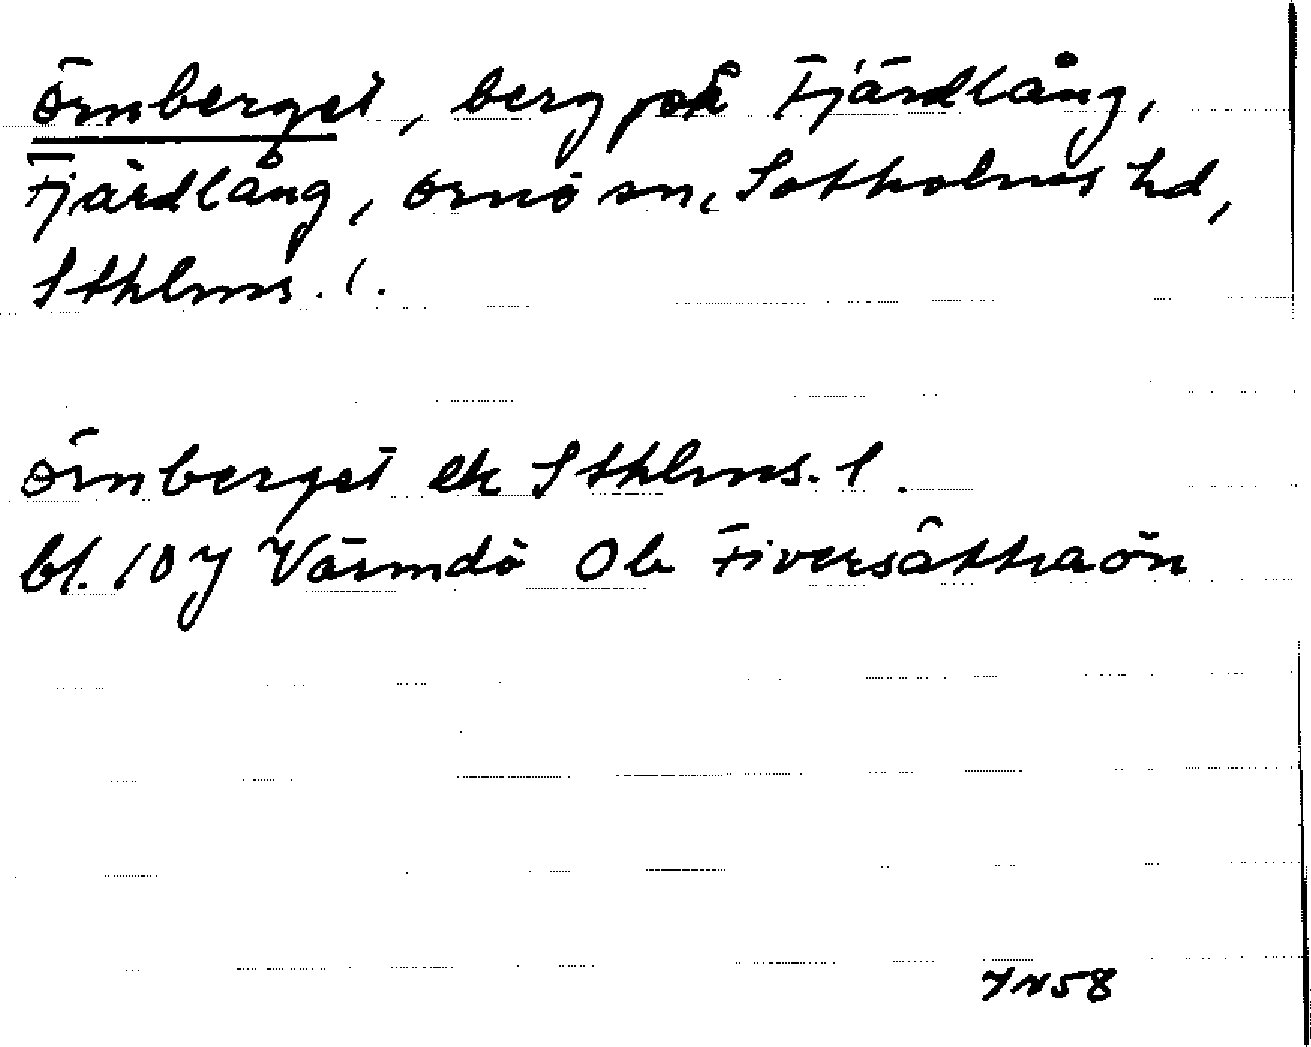 Örnberget, berg på Fjärdlång,
Fjärdlång, Ornö sn, Sotholms hd,
Sthlms. l.
Örnberget ek Sthlms. l.
bl. 10y Värmdö Ob Fiversättraön
YN58